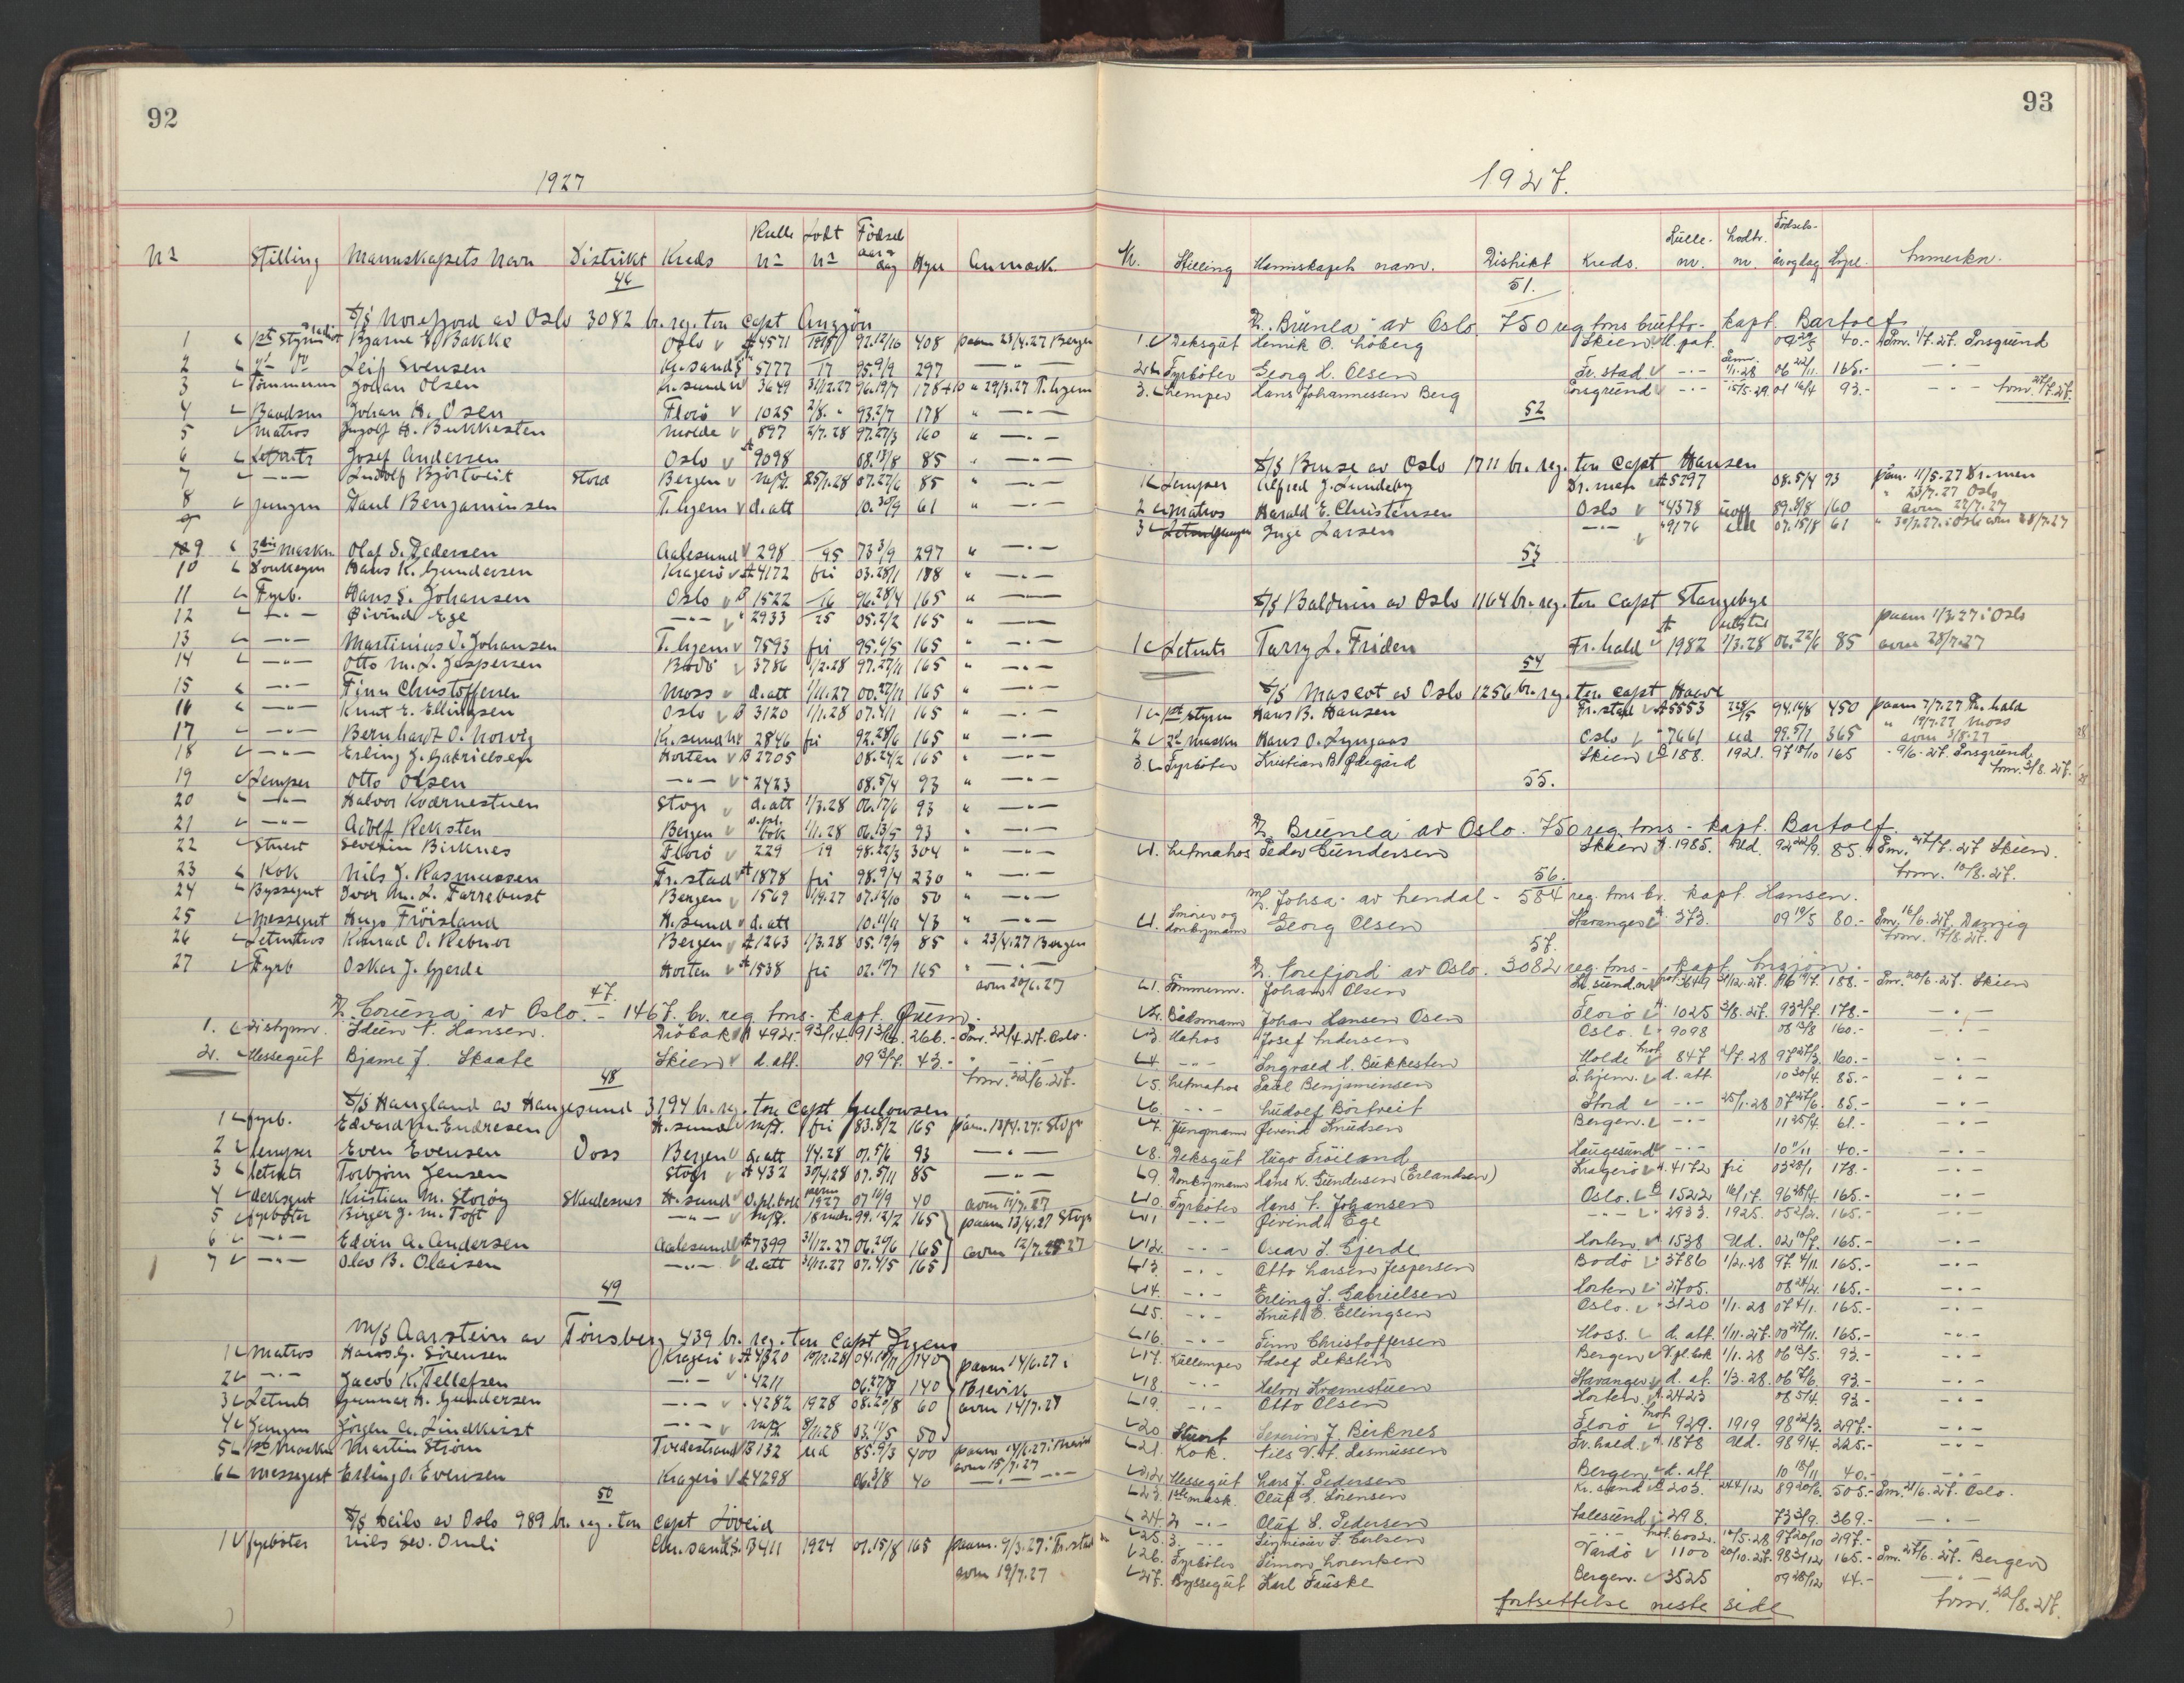 92
1927
Nr Stilling Mannskapets Navn Distrikt Kreds Rulle nr Lodt nr Fødsel aar & dag Hyre Anmærk
46
S/S Norefjord av Oslo 3082 br. reg. ton Capt
1 1st Styrm Bjarne Bakke Oslo A 4571 97.12/10 408 paam 23/4.27 Bergen
2 2 Do Leif Svensen Kr.sand S 5777 17 95.9/9 297 — " —
3 Tømmerm Johan Olsen Kr.sund N 3649 31/12.27 96.19/7 178+10 " 29/3.27 T.hjem
4 Baadsm Johan H. Osen Florø 1025 2/8. " 93.2/7 178 " — " —
5 Matros H. Bukkesten Molde 897 2/7.28 97.27/3 160 " — " —
6 Letmatr Josef Andersen Oslo A 9098 08.13/8 85 " — " —
7 — " — Ludolf Bjørtveit Stord Bergen 25/1.28 07.27/6 85 " — " —
8 Jungm Paul Benjaminsen T.hjem d.att 10.30/9 61 " — " —
9 3die Maskn Olaf S. Pedersen Aalesund 298 95 73 3/9 297 " — " —
10 Donkeym Hans K. Gundersen Kragerø A 4172 fri 03.28/1 178 " — " —
11 Fyrb. Hans S. Johansen Oslo B 1522 16 96.28/4 165 " — " —
12 — " — Øivind Ege — " — " 2933 25 05.2/2 165 " — " —
13 — " — Martinius J. Johansen T.hjem 7593 fri 95.6/5 165 " — " —
14 — " — Otto M. L. Jespersen Bodø 3786 1/2.28 97.27/11 165 " — " —
15 — " — Finn Christoffersen Moss d.att 1/11.27 00.27/11 165 " — " —
16 — " — Knut E. Ellingsen Oslo B 3120 1/1.28 07.4/1 165 " — " —
17 — " — Bernhardt O. Norvig Kr.sund N 2846 fri 92.28/6 165 " — " —
18 — " — Erling J. Gabrielsen Horten B 2705 08.24/2 165 " — " —
19 Lemper Otto Olsen — " — " 2423 08.5/4 93 " — " —
20 — " — Halvor Kværnestuen Stvgr d.att 1/3.28 06.17/6 93 " — " —
21 — " — Adolf Reksten Bergen v.pl. bok 1/1.28 06.13/5 93 " — " —
22 Stuert Severin Birknes Florø 229 19 98.22/3 304 " — " —
23 Kok Nils J. Rasmussen Fr.stad A 1878 fri 98.9/4 230 " — " —
24 Byssegut Ivar M. L. Farrebust Bergen 1569 1/9.27 07.12/10 50 " — " —
25 Messegut Hugo Frøisland H.sund d.att 10.11/11 43 " — " —
26 Letmatros Konrad O. Rebnor Bergen A 1263 1/3.28 05.19/9 85 " 23/4.27 Bergen
27 Fyrb Oskar J. Gjerde Horten A 1538 fri 02.10/7 165 " — " —
avm 20/6.27
47.
D/S Coruna av Oslo. - 1467. br. reg. tons. kapt. Øren.
1. 2. styrm. T. Hansen. Drøbak A 492. 93/14. 91 3/6. 266.- Pm. 22/4.27. Oslo.
2. Messegut Bjarne J. Skaate Skien d.att. 09 3/7. 43.- — " —
Avm. 22/6.27.
48
S/S Haugland av Haugesund 3194 br. reg. ton Capt Gulowsen
1 Fyrb. Edvard M. Endresen H.sund fri 83.8/2 165 paam. 13/4.27 i Stvgr
2 Lemper Even Evensen Voss Bergen d.att 1/4.28 07.5/6 93 — " —
3 Letmtr Torbjørn Jensen Stvgr A 432 30/4.28 07.5/11 85 — " —
4 Deksgut Kristian M. Storøy Skudesnes H.sund v.pl.bok 1927 07 10/9 40 avm 12/7.27
5 Fyrbøter Birger J. M. Toft — " — 99.12/2 165 paam 13/4.27 Stvgr
6 — " — Edvin A. Andersen Aalesund A 7399 31/12.27 06.20/6 165 avm 12/7.27
7 — " — Olav B. Olaisen — " — d.att 31/12.27 07.4/5 165
49
M/S Aarstein av Tønsberg 439 br. reg. ton Capt
1 Matros Hans G. Sørensen Kragerø A 4320 10/12.28 04.18/11 140 paam 14/6.27 i
2 — " — Jacob K. Tellefsen — " — " 4211 06.27/8 140 Brevik
3 Letmtr Gunnar H. Gundersen — " — " 4282 1928 08.20/8 60 avm 14/7.27
4 Jungm Jørgen A. Lindkvist — " — 8/11.28 03.11/5 50
5 1st Maskn Martin Strøm Tvedestrand B 132 ud 85.9/3 400 paam 14/6.27 i Brevik
avm 15/7.27
6 Messegut Erling O. Evensen Kragerø A 4298 06.3/8 40 — " —
50
S/S Heilo av Oslo 989 br. reg. ton Capt Løveid
1 Fyrbøter Nils Sev. Omli Chr.sand S. B 411 1924 01.15/8 165 paam. 9/3.27 i Fr.stad
avm 19/7.27
93
1927.
Nr. Stilling Mannskapets navn. Distrikt Kreds. Rulle- nr. Lodtr. nr. Fødsels- år og dag Hyre. Anmerkn.
51.
D/S "Brunla" av Oslo. 750 reg tons brutto - kapt. Bartolf
1. Deksgut Henrik O. Løberg Skien 09 22/5 40.- Pm. 1/7.27. Porsgrund
2. Fyrbøter Georg H. Olsen Fr.stad — " — 1/1.28 06 22/11. 165.- — " —
3. Lemper Hans Johannessen Berg Porsgrund — " — 15/5.29. 01 16/4 93.- — " — Avm. 27/7.27.
52
S/S Bruse av Oslo 1711 br. reg. ton Capt Hansen
1 Lemper Alfred J. Lundeby Dr.men A 5297 08.5/4 93 paam. 11/5.27 Dr.men
" 23/7.27 Oslo
2 Matros Harald E. Christensen Oslo " 4378 89.8/8 160 avm 27/7.27
3 Jungm Inge Larsen — " — " 9176 07.15/8 61
53
S/S Balduin av Oslo 1164 br. reg. ton Capt Stangebye
paam 1/3.27 i Oslo
1 Letmtr Tarry L. Friden Fr.hald A 1982 1/3.28 06.22/6 85 avm 28/7.27
54
S/S Mascot av Oslo 1256 br. reg. ton Capt Haave
1 1st Styrm Hans B. Hansen Fr.stad A 5553 94.16/8 450 paam 7/7.27 Fr.hald
" 19/7.27 Moss
2 2d Maskn Hans O. Lyngaas Oslo " 7661 ud 99.5/1 365 avm 3/8.27
3 Fyrbøter Kristian B. Ødegård Skien B 188. 1921. 97 18/10 165 - 9/6.27. Porsgrund
Avm. 3/8.27.
55.
D/S Brunla av Oslo. 750 reg. tons - kapt. Bartolf.
1. Letmatros Peder Gundersen Skien A 1985. Ud. 92 22/9. 85.- Pm. 27/7.27 Skien.
Avm. 10/8.27.
56.
M/S Johsa av Arendal - 584 reg. tons br. kapt. Hansen.
1. Smører og donkeymann Georg Olsen Stavanger A 373. 09 19/5 80.- Pm. 16/6.27. Danzig
Avm. 17/8.27.
57.
D/S Norefjord av Oslo. 3082 reg. tons - kapt.
1. Tømmerm. Johan Olsen Kr.sund.n 3649 31/12.27. 96 19/7. 188.- Pm. 20/6.27. Skien
2. Båtsmann Johan Hansen Osen Florø A 1025 2/8.27. 93 2/7. 178.- — " —
3. Matros Josef Andersen Oslo. 9098 08 13/8 160.- — " —
4. — " — Ingvald H. Bukkesten Molde 847 2/7.28 97 27/3. 160.- — " —
5. Letmatros Paul Benjaminsen T.hjem. d. att. 10 30/4. 85.- — " —
6. — " — Ludolf Børtveit Stord — " — 25/1.28 07 27/6. 85.- — " —
7. Jungmann Øivind Knudsen Bergen. — " — 11 25/4. 61.- — " —
8. Deksgut Hugo Frøiland Haugesund — " — 10 11/11 40.- — " —
9. Donkeymann Hans K. Gundersen (Erlandsen) Kragerø A. 4172 fri 03 28/1 178.- — " —
10. Fyrbøter Hans T. Johansen Oslo. B 1522 16/17. 96 28/4. 165.- — " —
11 — " — Øivind Ege — " — 2933. 1925. 05 2/2. 165.- — " —
12. — " — Oscar J. Gjerde Horten A 1538 Ud. 02 10/7. 165.- — " —
13. — " — Otto Larsen Jespersen Bodø 3786 1/2.28 97. 4/11. 165.- — " —
14. — " — Erling J. Gabrielsen Horten 2705. 08 24/2. 165.- — " —
15. — " — Knut E. Ellingsen Oslo. 3120 1/1.28 07 4/1. 165.- — " —
16. — " — Finn Christoffersen Moss. d. att. 1/11.27. 00 27/11. 165.- — " —
17. Kullemper Adolf Reksten Bergen V.pl.bok 1/1.28 06 13/5. 93.- — " —
18. — " — Halvor Kvarnestuen Stavanger d. at. 1/3.28. 06 7/6. 93.- — " —
19. — " — Otto Olsen Horten A. 2423 08 5/4. 93.- — " —
20 Stuert Severin J. Birknes Florø 929. 1919 98 22/3. 297.- — " —
21. Kok. Nils V. H. Rasmussen Fr.hald. A. 1878 Ud. 98 9/4. 225.- — " —
22. Messegut Lars J. Pedersen Bergen d. att. 10 18/11 40.- — " —
23. 1ste mask. Oluf G. Sørensen Kr.sand B 203. 244/12 89 20/6. 505.- Pm. 21/6.27. Oslo.
24. 2 — " — Oluf S. Pedersen Aalesund 298. 73 3/9. 369.- — " —
25. 3. — " — J. Carlsen — " — 6052. 10/5.28 97 20/10 297.- — " —
26. Fyrbøter Simon Lorentzen Vardø 1100 20/10.27. 98 3/12 165.- Pm. 27/6.27. Bergen
27. Byssegut Karl Fauske Bergen. 3525 09 28/12 44.- — " —
fortsettelse neste side Avm. 22/8.27.